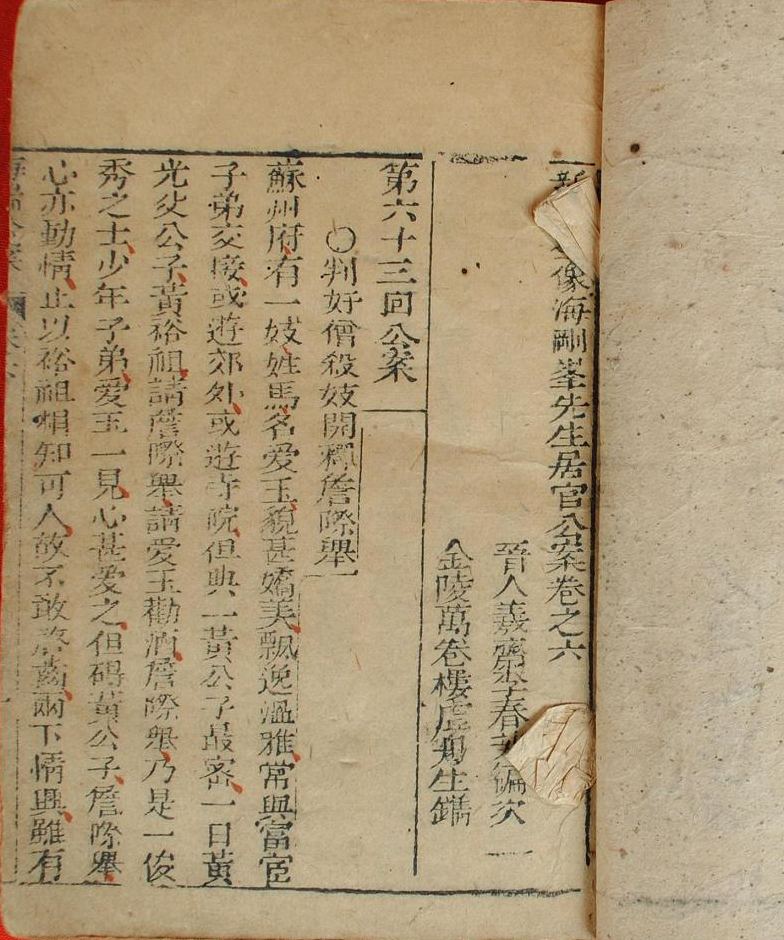 像海剛峯先生居官公案卷之六
晉人羲齋李春芳編次
金陵萬卷樓虛舟生鐫
第六十三回公案
○判奸僧殺妓開釋詹際舉
蘇州府有一妓姓馬名愛玉貌甚嬌美飄逸溫雅常與富宦
子弟交接或遊郊外或遊寺院但與一黃公子最密一日黃
光父公子黃裕祖請詹際舉請愛玉勸酒詹際舉乃是一俊
秀之士少年子弟愛玉一見心甚愛之但碍黃公子詹際舉
心亦動情止以裕祖相知可人故不敢啓齒兩下情興雖有